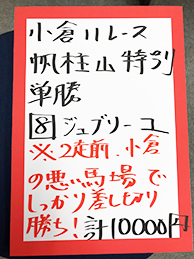 小倉11レース
帆柱山特別
単勝
8 ジュブリーユ
※2走前、小倉
の悪い馬場で
しっかり差し切り
勝ち!計10000円